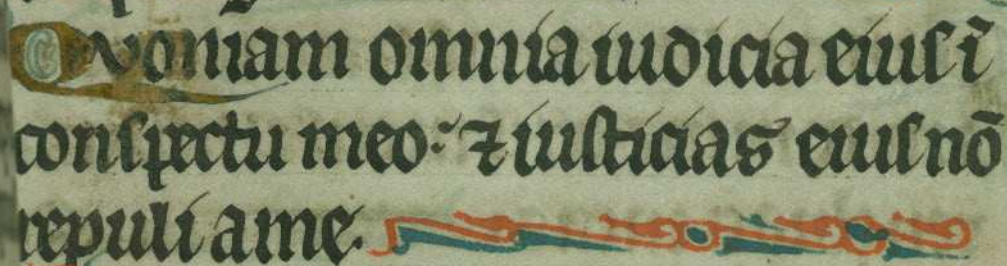 Quoniam omnia iudicia eius ī
conspectu meo: ⁊ iusticias eius nō
repuli a me.